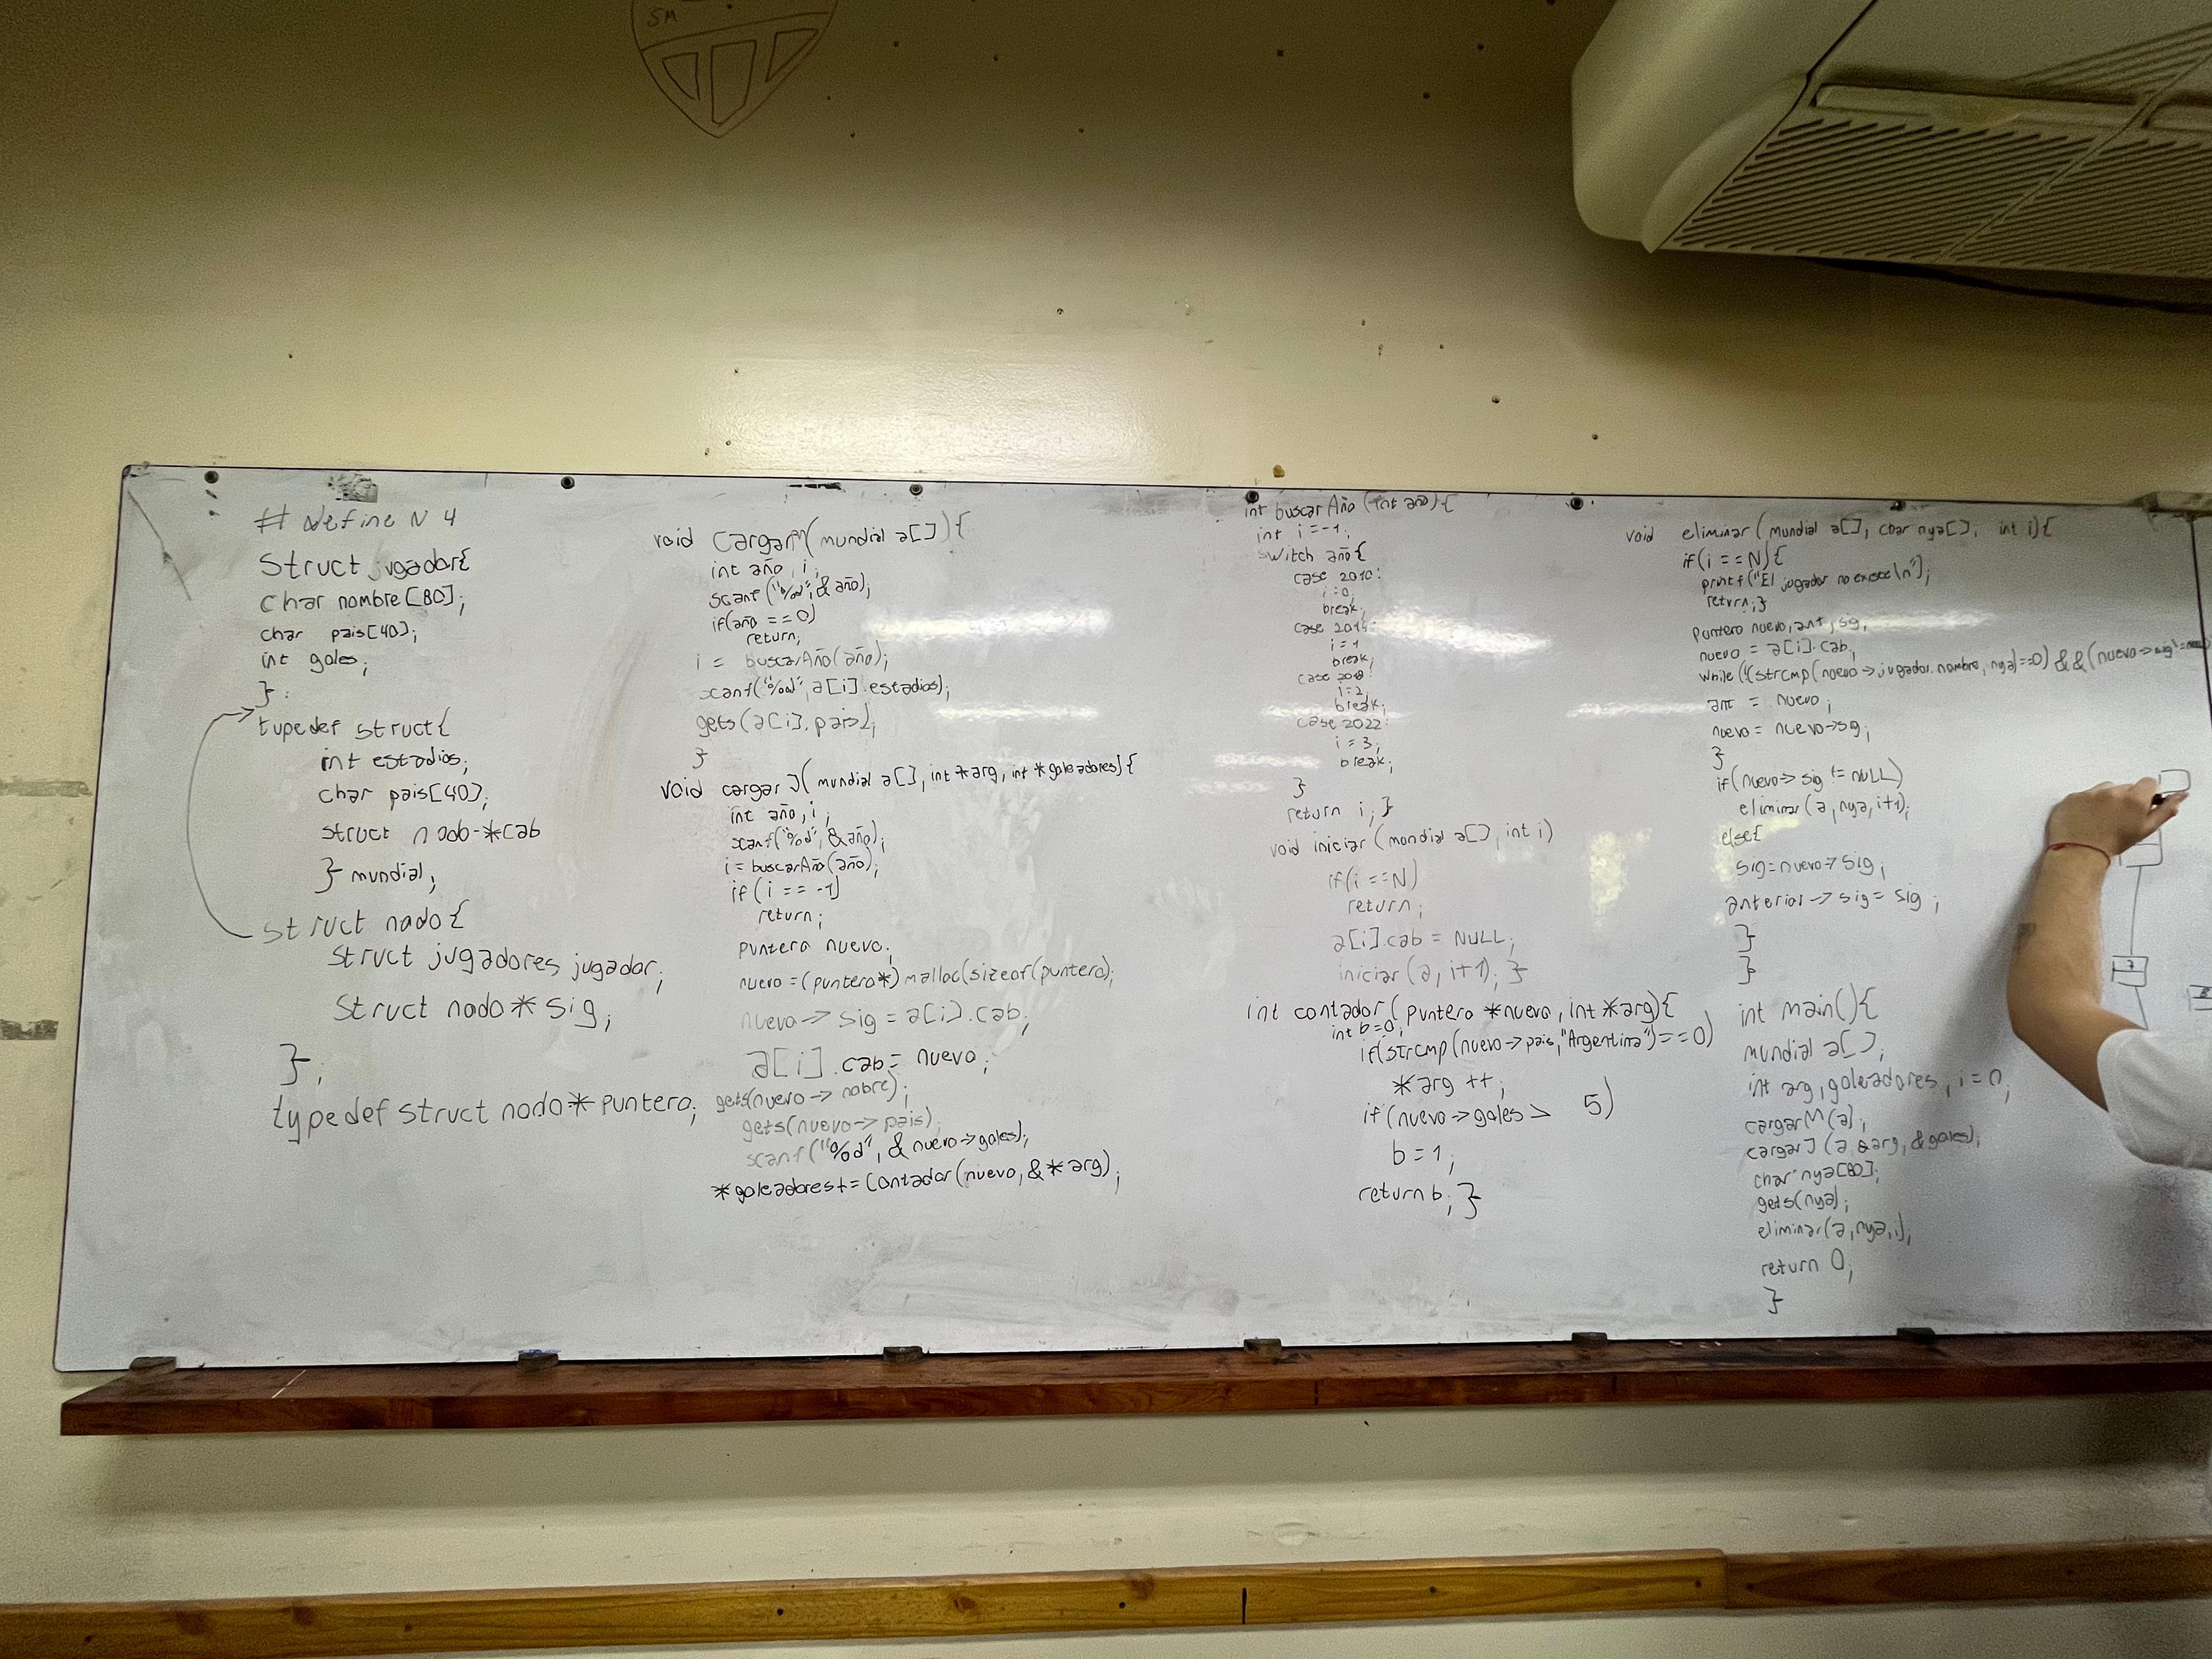 SM
# define N 4
Struct jugador{
char nombre[80];
char pais[40];
int goles;
};
typedef struct{
int estadios;
char pais[40];
struct nodo *cab
} mundial;
struct nodo{
struct jugadores jugador;
struct nodo * sig;
};
typedef struct nodo * puntero;
void CargarM(mundial a[]){
int año, i;
scanf("%d", & año);
if(año == 0)
return;
i = buscarAño(año);
scanf("%d", a[i].estadios);
gets(a[i].pais);
}
void cargarJ(mundial a[], int *arg, int *goleadores){
int año, i;
scanf("%d", &año);
i = buscarAño(año);
if(i == -1)
return;
puntero nuevo;
nuevo = (puntero*) malloc(sizeof(puntero);
nuevo -> sig = a[i].cab;
a[i].cab = nuevo;
gets(nuevo -> nobre);
gets(nuevo -> pais);
scanf("%d", & nuevo->goles);
*goleadores+= Contador(nuevo, &*arg);
int buscarAño (int año){
int i = -1;
switch año{
case 2010:
i = 0;
break;
case 2014:
i = 1
break;
case 2018
i = 2;
break;
case 2022:
i = 3;
break;
}
return i; }
void iniciar (mundial a[], int i)
if(i == N)
return;
a[i].cab = NULL;
iniciar (a, i+1); }
int contador (puntero *nuevo, int *arg){
int b=0;
if(strcmp(nuevo->pais,"Argentina")==0)
*arg ++;
if(nuevo->goles > 5)
b = 1;
return b; }
void eliminar (mundial a[], char nya[], int i){
if(i == N){
printf("El jugador no existe\n");
return;}
puntero nuevo, ant, sig;
nuevo = a[i].cab;
while(!(strcmp(nuevo->jugador.nombre, nya)==0) && (nuevo->sig!=
ant = nuevo;
nuevo = nuevo->sig;
}
if(nuevo-> sig != NULL)
eliminar(a, nya, i+1);
else{
sig=nuevo->sig;
anterior -> sig = sig;
}
}
int main(){
mundial a[];
int arg, goleadores, i = 0;
cargarM(a);
cargarJ(a &arg, &goles);
char nya[80];
gets(nya);
eliminar(a, nya, i);
return 0;
}